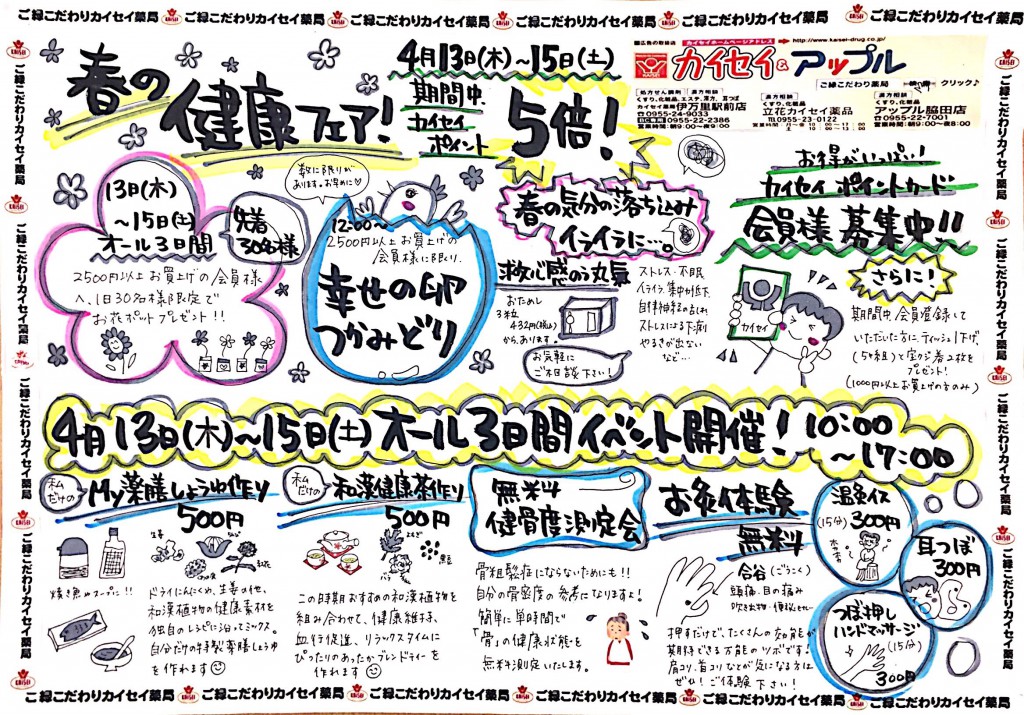 ご縁こだわりカイセイ薬局
春の
健康フェア!
4月13日(木)~15日(土)
期間中
カイセイ
ポイント
5倍!
カイセイホームページアドレス
http://www.kaisei-drug.co.jp/
カイセイ&アップル
ご縁こだわり薬局
クリック♪
処方せん調剤 漢方相談
くすり、化粧品、エステ、漢方、耳つぼ
カイセイ薬局 伊万里駅前店
☎0955-24-9033
0955-22-2386
営業時間:朝9:00~夜9:00
漢方相談
くすり、化粧品
立花カイセイ薬品
TEL0955-23-0122
くすり、化粧品
アップル脇田店
☎0955-22-7001
営業時間:朝9:00~夜8:00
13日(木)
~15日(土)
オール3日間
先着
30名様
2500円以上お買上げの会員様
へ、1日30名様限定で
お花ポットプレゼント!!
数に限りが
あります。お早めに♡
12:00~
2500円以上お買上げの
会員様に限り、
幸せの卵
つかみどり
春の気分の落ち込み
イライラに…。
救心感のう丸気
おためし
3粒
432円(税込)
からあります。
お気軽に
ご相談下さい!
ストレス・不眠
イライラ、集中力低下
自律神経の乱れ
ストレスによる下痢
やる気が出ない
など…
お得がいっぱい!
カイセイ ポイントカード
会員様 募集中!!
カイセイ
さらに!
期間中、会員登録して
いただいた方に、ティッシュ1下げ、
(5箱組)で空クジ券2枚を
プレゼント!
(1000円以上お買上げの方のみ)
4月13日(木)~15日(土)オール3日間イベント開催! 10:00
~17:00
私
だけの
My薬膳しょうゆ作り
500円
焼き魚やスープに!!
生姜
なつめ
紅花
ドライにんにくや、生姜の他、
和漢植物の健康素材を
独自のレシピに沿ってミックス。
自分だけの特製薬膳しょうゆ
を作れます☺
私
だけの
和漢健康茶作り
500円
よもぎ
黒豆
この時期おすすめの和漢植物を
組み合わせて、健康維持、
血行促進、リラックスタイムに
ぴったりのあったかブレンドティーを
作れます☺
無料
健骨度測定会
骨粗鬆症にならないためにも!!
自分の骨密度の参考になりますよ!
簡単に短時間で
「骨」の健康状態を
無料測定いたします。
お灸体験
無料
合谷(ごうこく)
頭痛、目の痛み
吹き出物・便秘などetc…
押すだけで、たくさんの効能が
期待できる万能のツボです!
肩コリ、首コリなどが気になる方は
ぜひ!ご体験下さい!
温灸イス
(15分)300円
ホカホカ
耳つぼ
300円
つぼ押し
ハンドマッサージ
(15分)
300円
ご縁こだわりカイセイ薬局